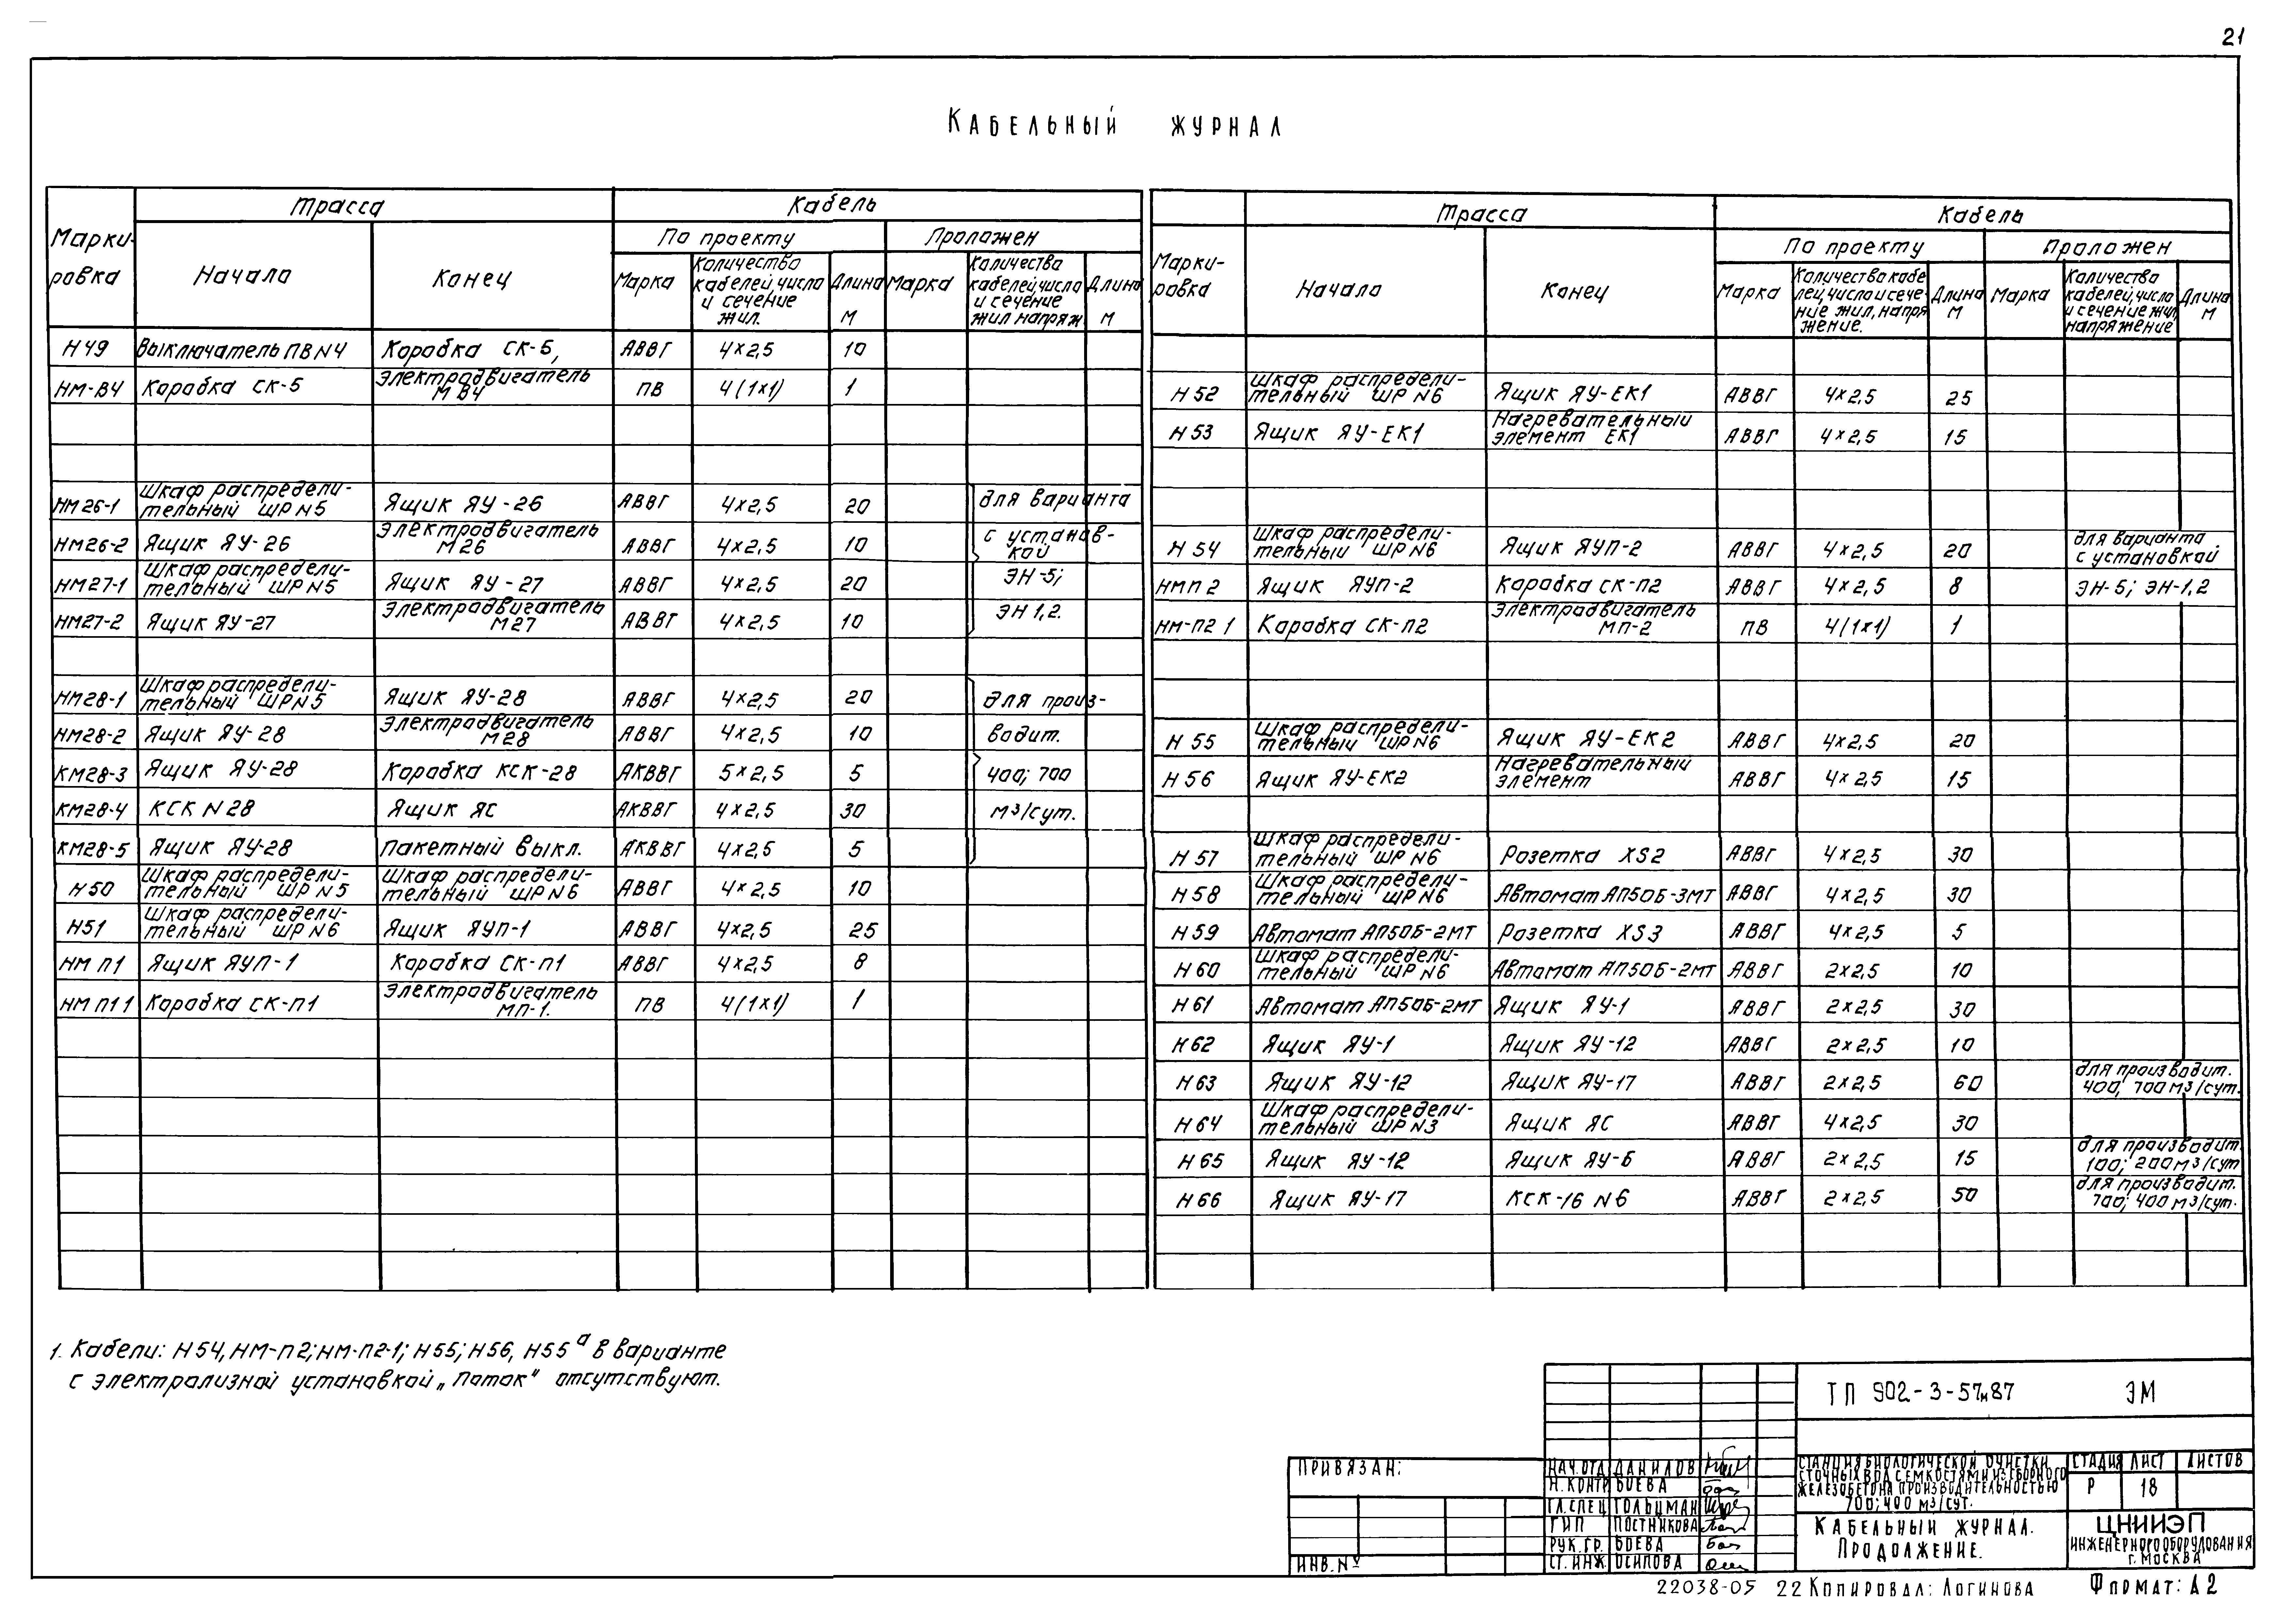 21
Кабельный журнал
Маркировка | Трасса | Кабель
Начало | Конец | По проекту | Проложен
Марка | Количество кабелей, число и сечение жил. | Длина м | Марка | Количества кабелей, число и сечение жил напряж. | Длина м
Н49 | Выключатель ПВN4 | Коробка СК-5, | АВВГ | 4×2,5 | 10
НМ-В4 | Коробка СК-5 | Электродвигатель М В4 | ПВ | 4(1×1) | 1
НМ26-1 | Шкаф распределительный ШРN5 | Ящик ЯУ-26 | АВВГ | 4×2,5 | 20 | для варианта
НМ26-2 | Ящик ЯУ-26 | Электродвигатель М26 | АВВГ | 4×2,5 | 10 | с установкой
НМ27-1 | Шкаф распределительный ШРN5 | Ящик ЯУ-27 | АВВГ | 4×2,5 | 20 | ЭН-5;
НМ27-2 | Ящик ЯУ-27 | Электродвигатель М27 | АВВГ | 4×2,5 | 10 | ЭН 1,2.
НМ28-1 | Шкаф распределительный ШРN5 | Ящик ЯУ-28 | АВВГ | 4×2,5 | 20 | для произ-
НМ28-2 | Ящик ЯУ-28 | Электродвигатель М28 | АВВГ | 4×2,5 | 10 | водит.
КМ28-3 | Ящик ЯУ-28 | Коробка КСК-28 | АКВВГ | 5×2,5 | 5 | 400; 700
КМ28-4 | КСК N28 | Ящик ЯС | АКВВГ | 4×2,5 | 30 | м3/сут.
КМ28-5 | Ящик ЯУ-28 | Пакетный выкл. | АКВВГ | 4×2,5 | 5
Н50 | Шкаф распределительный ШРN5 | Шкаф распределительный ШРN6 | АВВГ | 4×2,5 | 10
Н51 | Шкаф распределительный ШРN6 | Ящик ЯУП-1 | АВВГ | 4×2,5 | 25
НМ П1 | Ящик ЯУП-1 | Коробка СК-П1 | АВВГ | 4×2,5 | 8
НМ П11 | Коробка СК-П1 | Электродвигатель МП-1. | ПВ | 4(1×1) | 1
Маркировка | Трасса | Кабель
Начало | Конец | По проекту | Проложен
Марка | Количества кабелей, число и сечение жил, напряжение. | Длина м | Марка | Количества кабелей, число и сечение жил, напряжение | Длина м
Н52 | Шкаф распределительный ШРN6 | Ящик ЯУ-ЕК1 | АВВГ | 4×2,5 | 25
Н53 | Ящик ЯУ-ЕК1 | Нагревательный элемент ЕК1 | АВВГ | 4×2,5 | 15
Н54 | Шкаф распределительный ШРN6 | Ящик ЯУП-2 | АВВГ | 4×2,5 | 20 | для варианта с установкой
НМП2 | Ящик ЯУП-2 | Коробка СК-П2 | АВВГ | 4×2,5 | 8 | ЭН-5; ЭН-1,2
НМ-П2 1 | Коробка СК-П2 | Электродвигатель МП-2 | ПВ | 4(1×1) | 1
Н55 | Шкаф распределительный ШРN6 | Ящик ЯУ-ЕК2 | АВВГ | 4×2,5 | 20
Н56 | Ящик ЯУ-ЕК2 | Нагревательный элемент | АВВГ | 4×2,5 | 15
Н57 | Шкаф распределительный ШРN6 | Розетка XS2 | АВВГ | 4×2,5 | 30
Н58 | Шкаф распределительный ШРN6 | Автомат АП50Б-3МТ | АВВГ | 4×2,5 | 30
Н59 | Автомат АП50Б-2МТ | Розетка XS3 | АВВГ | 4×2,5 | 5
Н60 | Шкаф распределительный ШРN6 | Автомат АП50Б-2МТ | АВВГ | 2×2,5 | 10
Н61 | Автомат АП50Б-2МТ | Ящик ЯУ-1 | АВВГ | 2×2,5 | 30
Н62 | Ящик ЯУ-1 | Ящик ЯУ-12 | АВВГ | 2×2,5 | 10
Н63 | Ящик ЯУ-12 | Ящик ЯУ-17 | АВВГ | 2×2,5 | 60 | для производит. 400, 700 м3/сут.
Н64 | Шкаф распределительный ШРN3 | Ящик ЯС | АВВГ | 4×2,5 | 30
Н65 | Ящик ЯУ-12 | Ящик ЯУ-6 | АВВГ | 2×2,5 | 15 | для производит. 100; 200 м3/сут
Н66 | Ящик ЯУ-17 | КСК-16 N6 | АВВГ | 2×2,5 | 50 | для производит. 700; 400 м3/сут.
1. Кабели: Н54, НМ-П2; НМ-П2-1; Н55; Н56, Н55а в варианте
с электролизной установкой „Поток“ отсутствуют.
ТП 902-3-57м87 ЭМ
Привязан:
Инв. №
Нач. отд Данилов
Н. контр Боева
Гл. спец Гольцман
ГИП Постникова
Рук. гр. Боева
Ст. инж. Осипова
Станция биологической очистки
сточных вод с емкостями из сборного
железобетона производительностью
700; 400 м3/сут.
Стадия Лист Листов
Р 18
Кабельный журнал.
Продолжение.
ЦНИИЭП
инженерного оборудования
г. Москва
22038-05 22 Копировал: Логинова Формат: А2